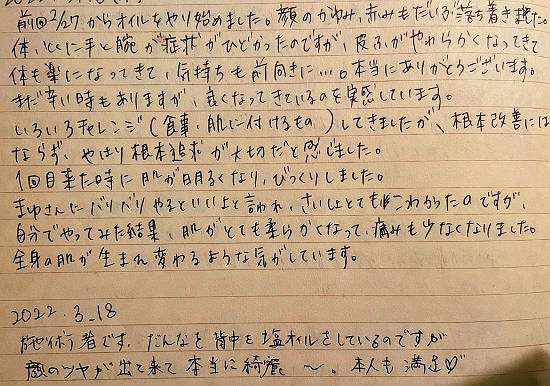 前回2/27からオイルをやり始めました。顔のかゆみ、赤みもだいぶ落ち着きました。
体、とくに手と腕が症状がひどかったのですが、皮ふがやわらかくなってきて
体も楽になってきて、気持ちも前向きに…。本当にありがとうございます。
まだ辛い時もありますが、良くなってきているのを実感しています。
いろいろチャレンジ(食事、肌に付けるもの)してきましたが、根本改善には
ならず、やはり根本追求が大切だと感じました。
1回目来た時に肌が明るくなり、びっくりしました。
まゆさんにバリバリやるといいよと言われ、さいしょとてもこわかったのですが、
自分でやってみた結果、肌がとても柔らかくなって、痛みも少なくなりました。
全身の肌が生まれ変わるような気がしています。
2022.3.18
施術者です。だんなを背中を塩オイルをしているのですが
顔のツヤが出て来て本当に綺麗〜。本人も満足♡